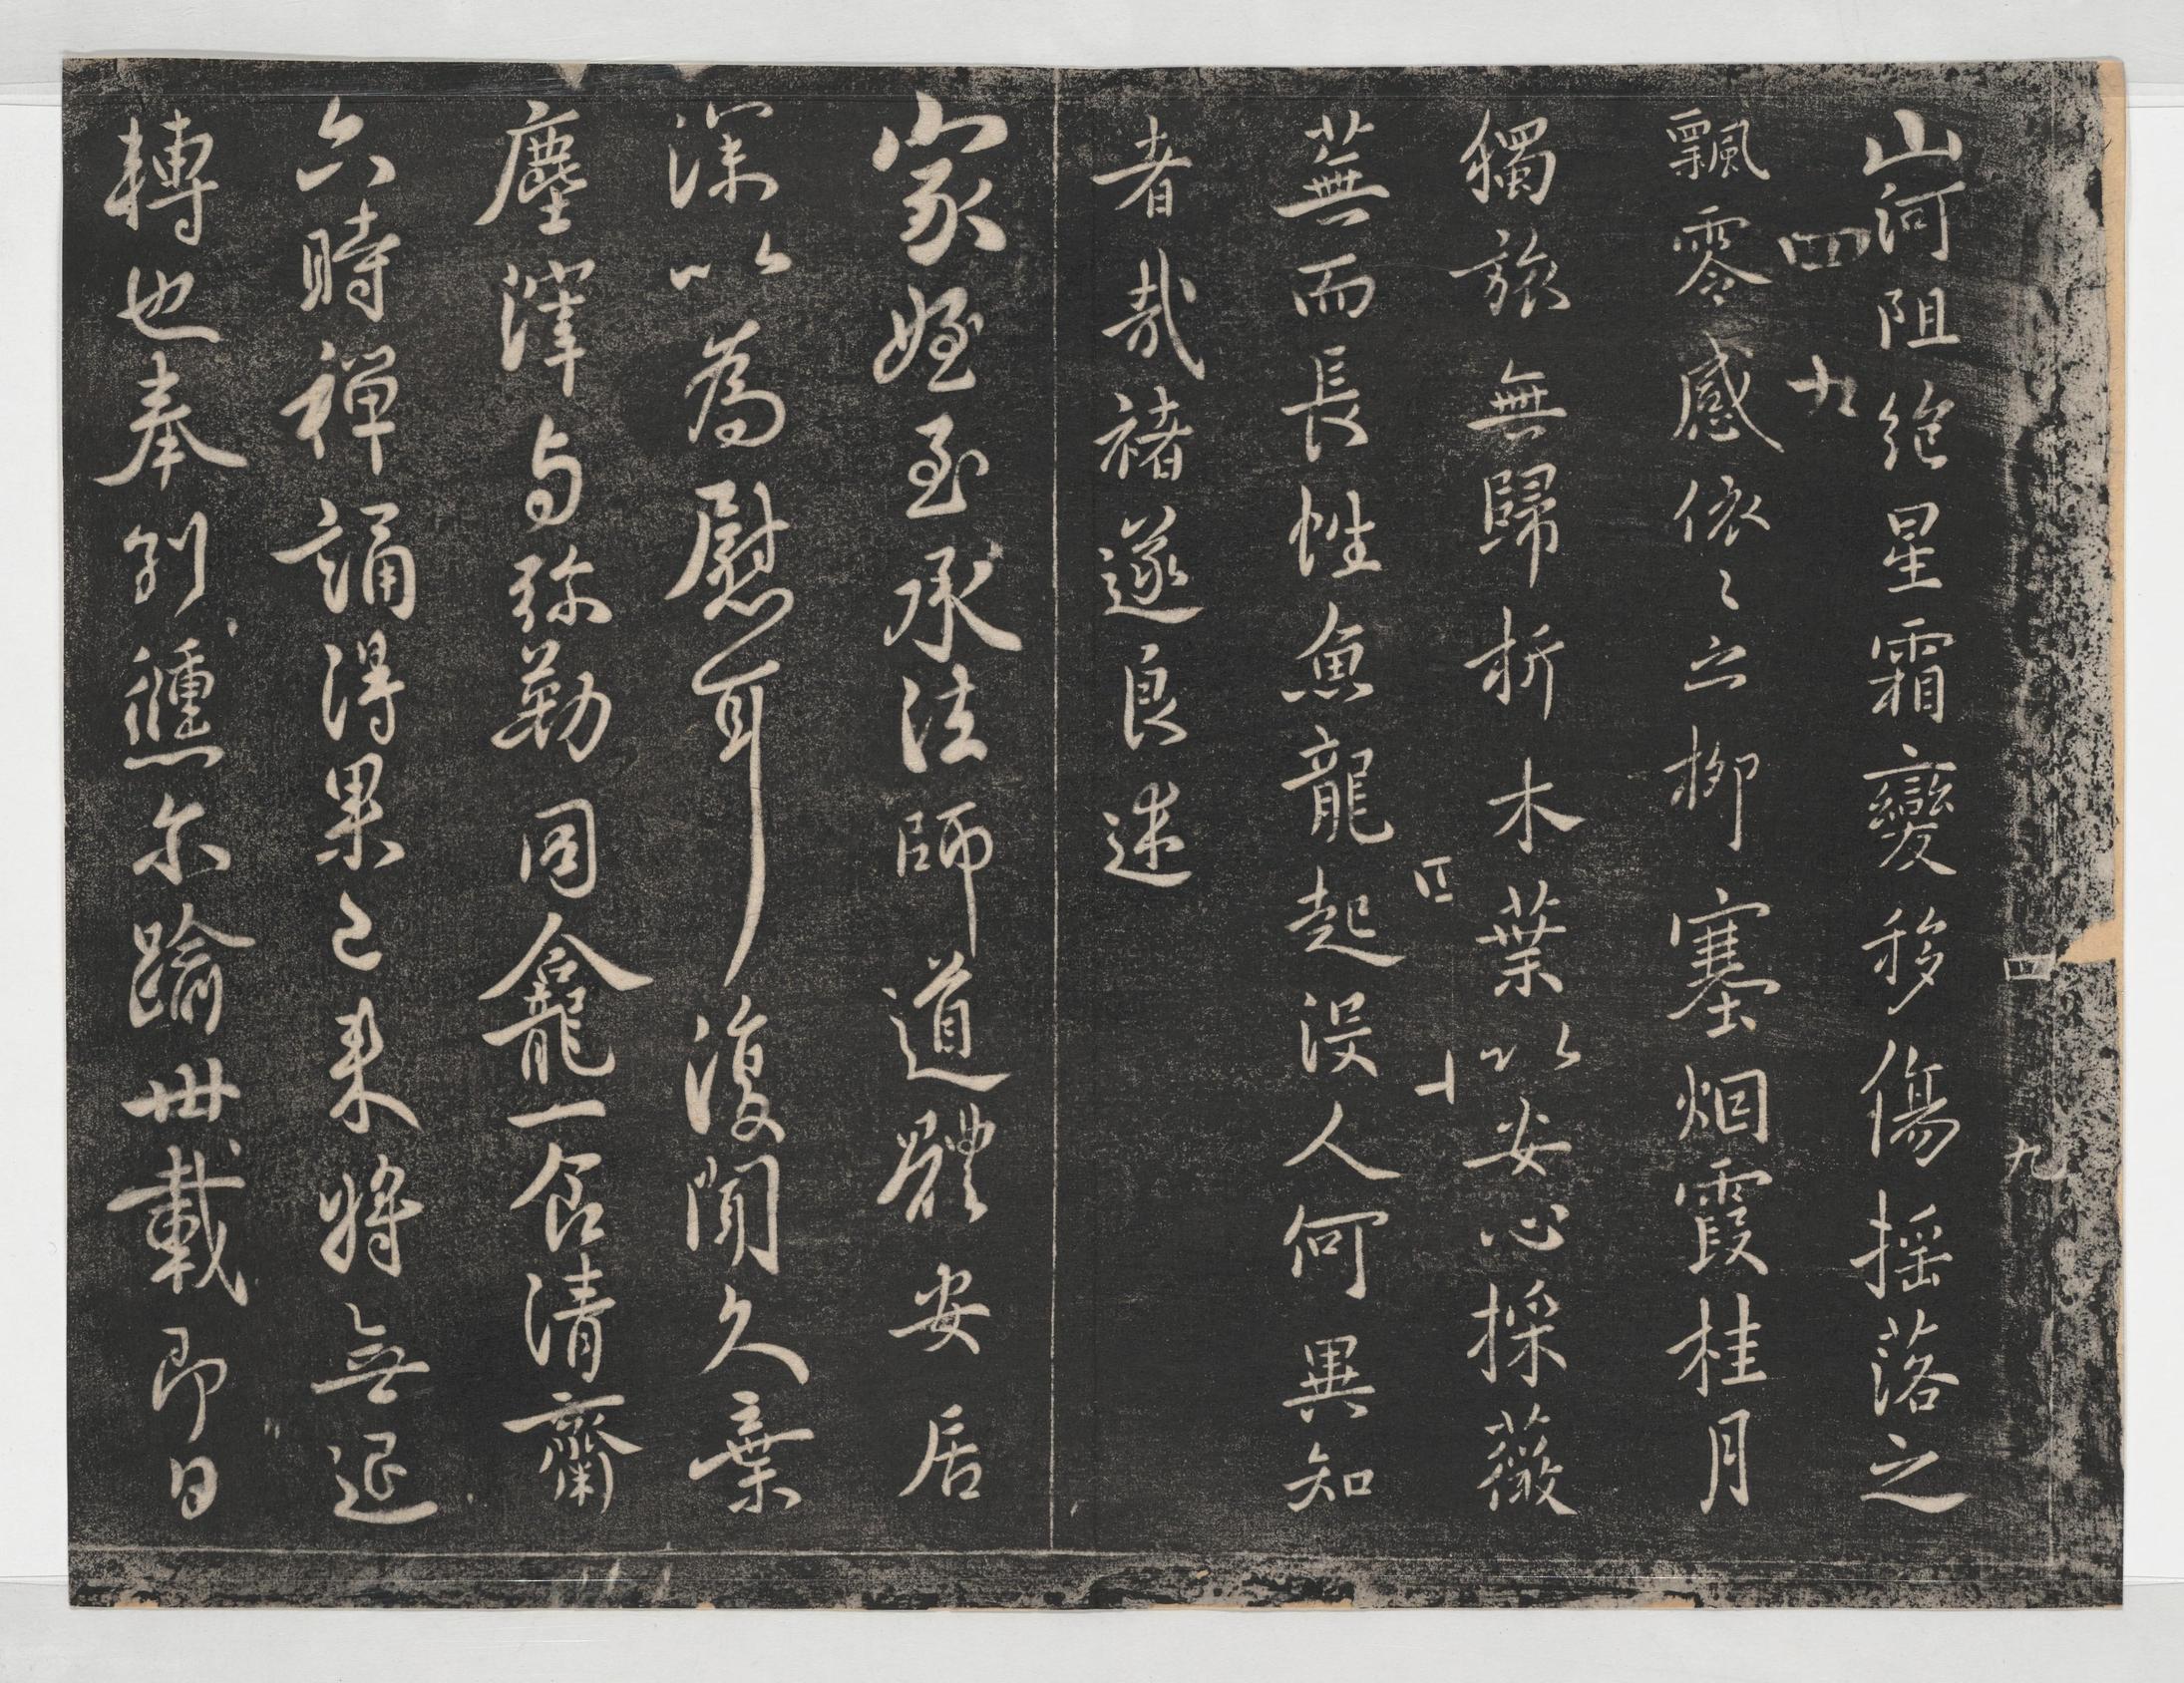 山河阻絶星霜變移傷摇落之
飄零感依〻之柳塞烟霞桂月
獨旅無歸折木葉以安心採薇
蕪而長性魚龍起没人何異知
者哉褚遂良述
家姪至承法師道體安居
深以為慰耳復聞久棄
塵滓与弥勒同龕一食清齋
六時禪誦得果已来將無退
轉也奉别倐尒踰卌載即日
四九
四十
四九